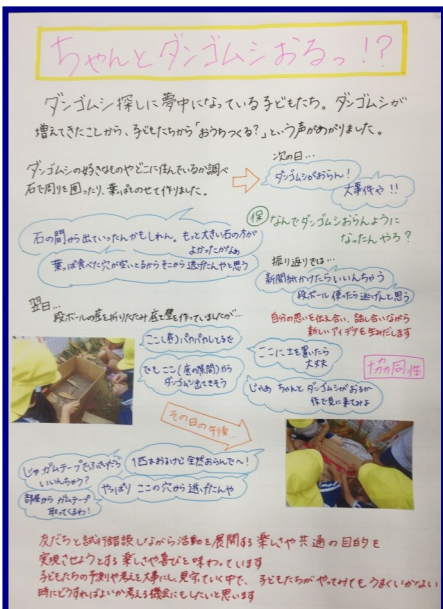 ちゃんとダンゴムシおるっ!?
ダンゴムシ探しに夢中になっている子どもたち。ダンゴムシが
増えてきたことから、子どもたちから「おうちつくる?」という声があがりました。
ダンゴムシの好きなものやどこに住んでいるか調べ
石で周りを囲ったり、葉っぱをのせて作りました。
次の日…
ダンゴムシがおらん!
大事件や!!
保 なんでダンゴムシおらんように
なったんやろ?
石の間から出ていったんかもしれん。もっと大きい石の方が
よかったかなぁ
葉っぱ食べた穴が空いとるからそこから逃げたんやと思う
振り返りでは…
新聞紙かけたらいいんちゃう
段ボール使ったら逃げんと思う
自分の思いを伝え合い、話し合いながら
新しいアイデアを生みだします
翌日…
段ボールの底を折りたたみ底と壁を作っていましたが…
ここ(巻)パカパカしとるで
でもここ(底の隙間)から
ダンゴムシ出てきそう
ここに土を置いたら
大丈夫
じゃあ ちゃんとダンゴムシがおるか
後で見に来てみよ
協同性
その日の午後…
じゃガムテープでふさいだら
いいんちゃう?
部屋からガムテープ
取ってくるわ!
1匹おるけど全然おらんで〜!
やっぱり ここの穴から逃げたんや
友だちと試行錯誤しながら活動を展開する楽しさや共通の目的を
実現させようとする楽しさや喜びを味わっています
子どもたちの予測や考えを大事にし、見守っていく中で、子どもたちがやってみてもうまくいかない
時にどうすればよいか考える機会にもしたいと思います